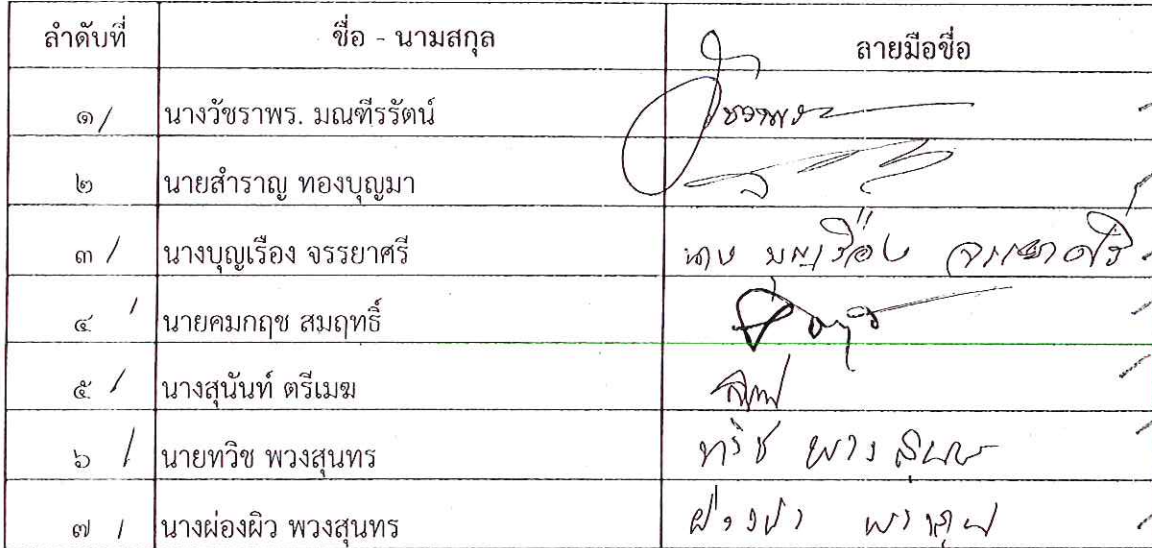 ลำดับที่ ชื่อ - นามสกุล ลายมือชื่อ
๑ / นางวัชราพร. มณฑีรรัตน์
๒ นายสำราญ ทองบุญมา
๓ / นางบุญเรือง จรรยาศรี นาง บุญเรือง จรรยาศรี
๔ / นายคมกฤช สมฤทธิ์
๕ / นางสุนันท์ ตรีเมฆ
๖ / นายทวิช พวงสุนทร ทวิช พวงสุนทร
๗ / นางผ่องผิว พวงสุนทร